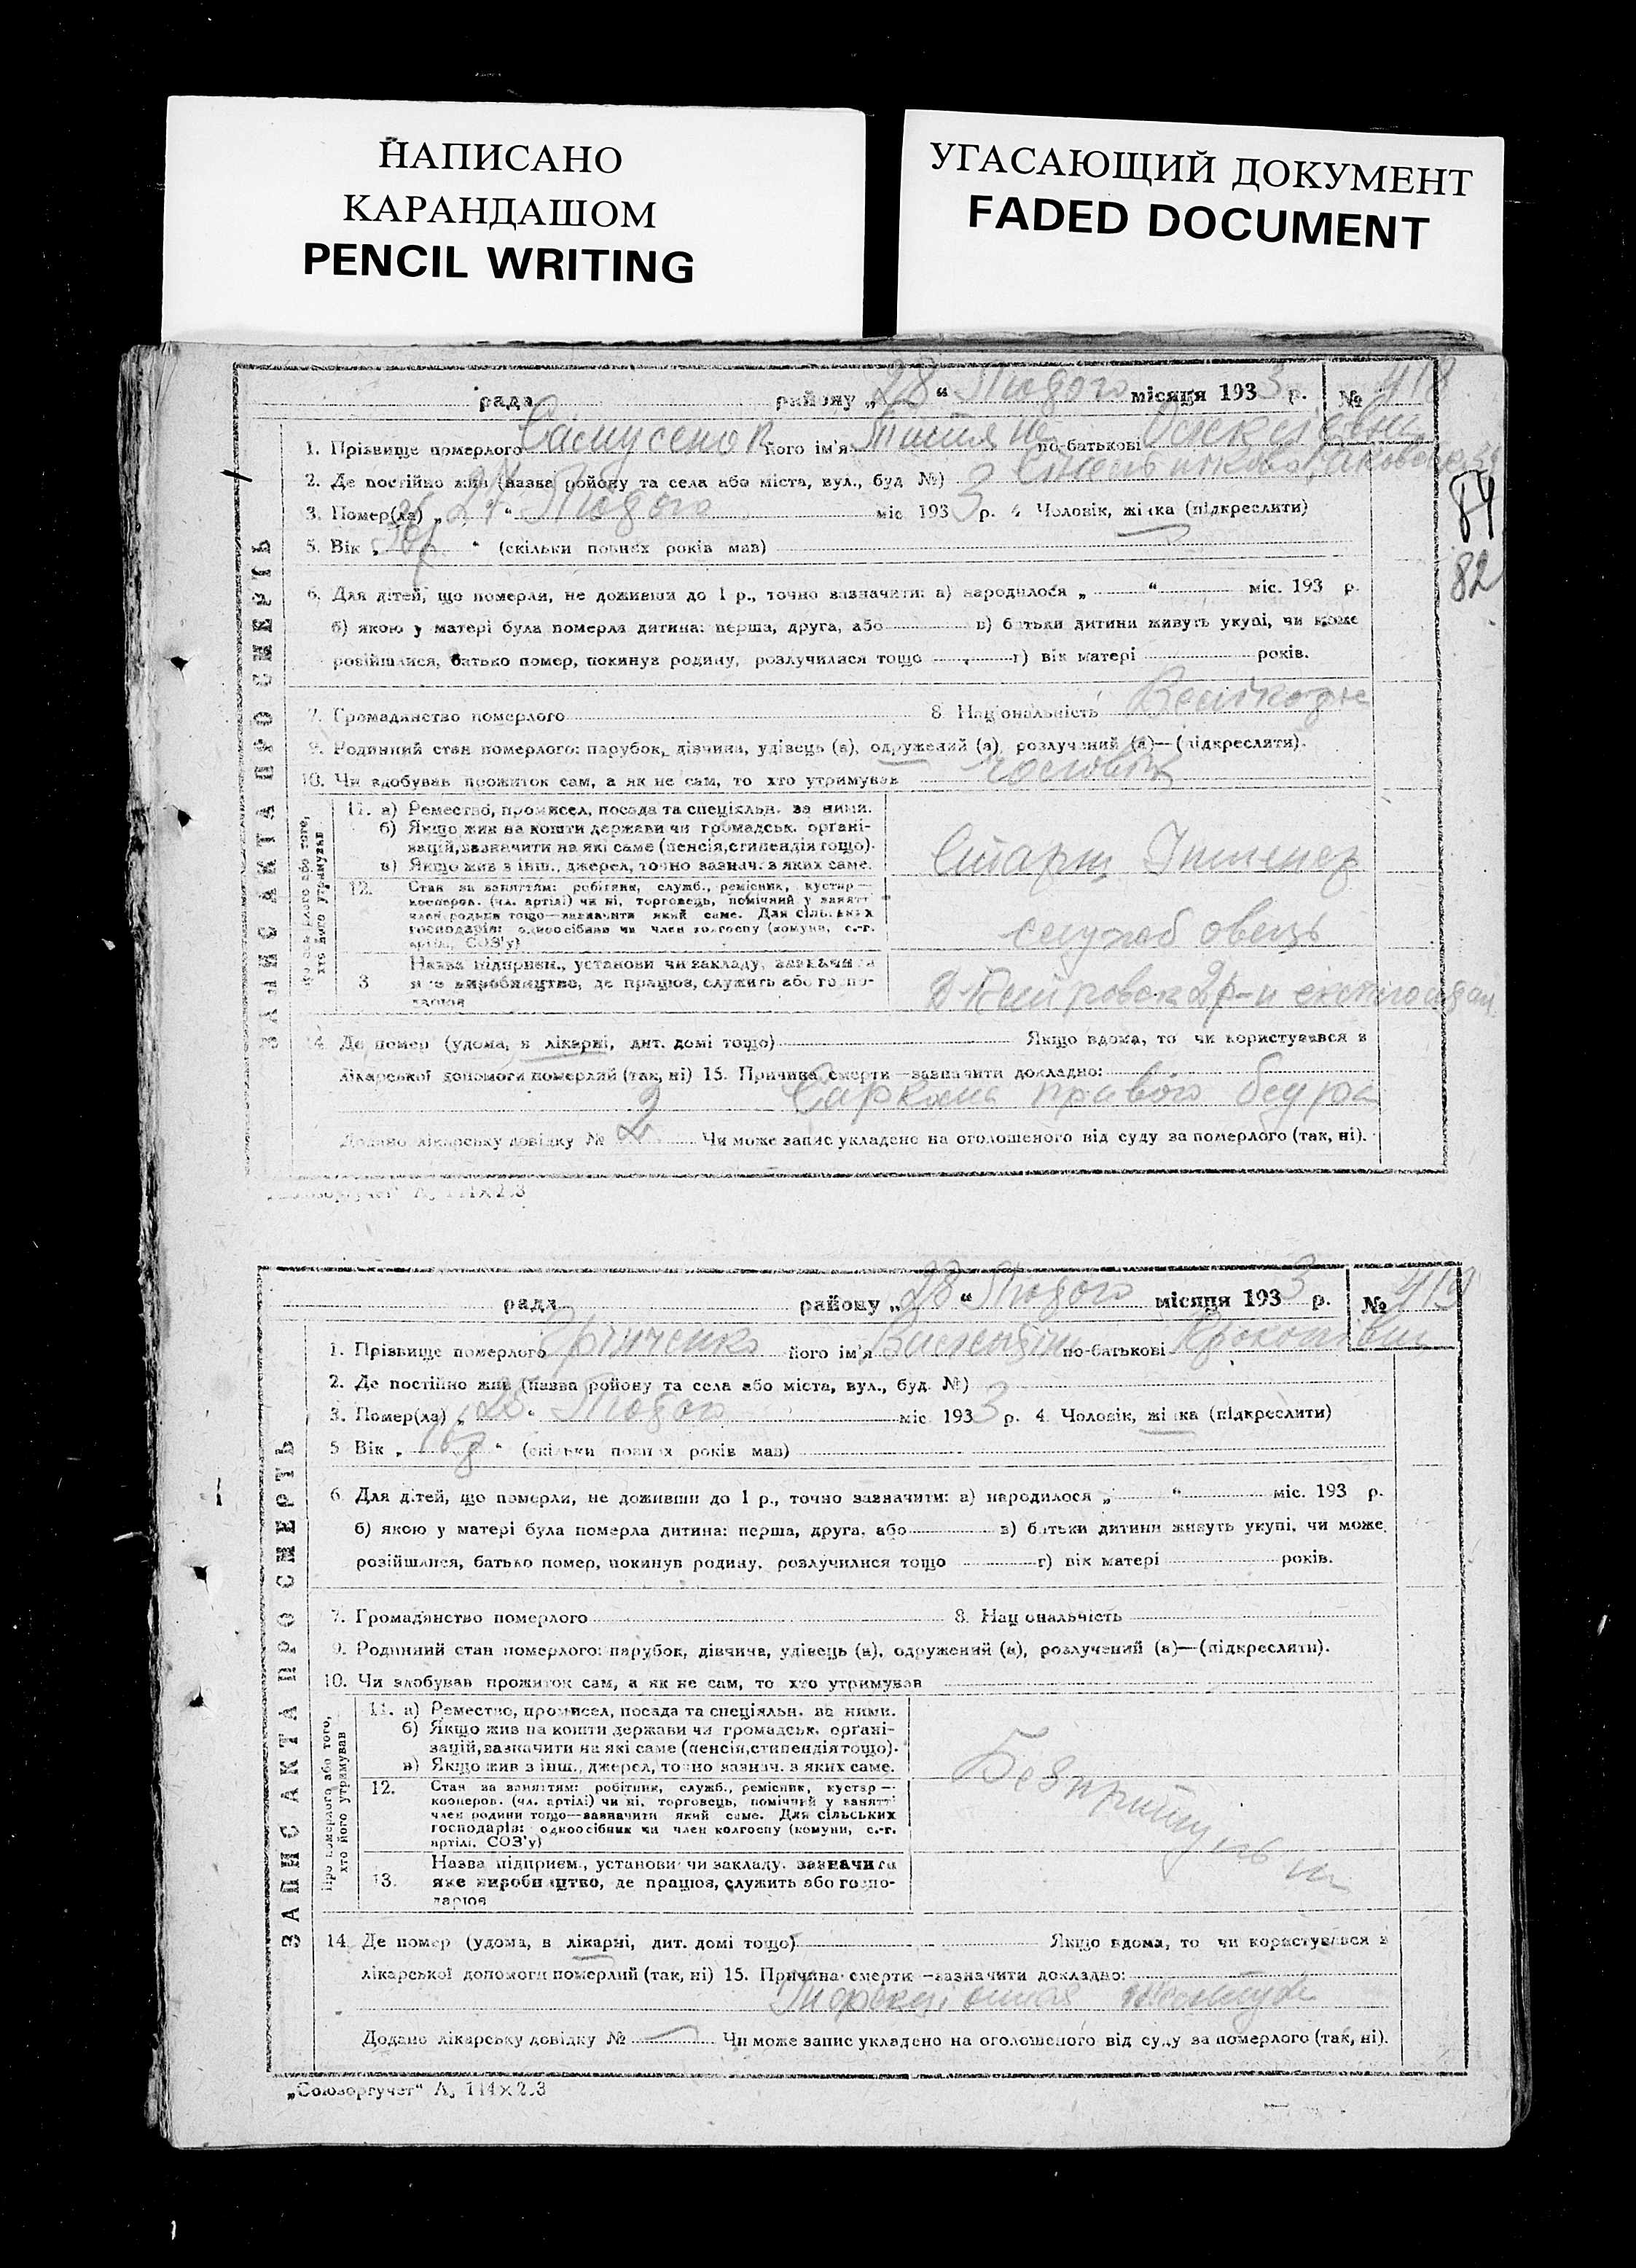 НАПИСАНО
КАРАНДАШОМ
PENCIL WRITING
УГАСАЮЩИЙ ДОКУМЕНТ
FADED DOCUMENT
рада району „28“ Лютого місяця 1933 р. № 418
1. Прізвище померлого його ім'я по-батькові
2. Де постійно жив (назва району та села або міста, вул., буд. №)
3. Помер(ла) „27“ Лютого міс. 1933 р. 4. Чоловік, жінка (підкреслити)
84
82
5. Вік „ “ (скільки повних років мав)
6. Для дітей, що померли, не доживши до 1 р., точно зазначити: а) народилося „ “ міс. 193 р.
б) якою у матері була померла дитина: перша, друга, або в) батьки дитини живуть укупі, чи може
розійшлися, батько помер, покинув родину, розлучилися тощо г) вік матері років.
7. Громадянство померлого 8. Національність
9. Родинний стан померлого: парубок, дівчина, удівець (а), одружений (а), розлучений (а)—(підкреслити).
10. Чи здобував прожиток сам, а як не сам, то хто утримував чоловік
ЗАПИС АКТА ПРО СМЕРТЬ
Про померлого або того, хто його утримував
11. а) Ремество, промисел, посада та спеціяльн. за ними.
б) Якщо жив на кошти держави чи громадськ. органі-
зацій, зазначити на які саме (пенсія, стипендія тощо).
в) Якщо жив з інш. джерел, точно зазнач. з яких саме.
Старш Інженер
12. Стан за заняттям: робітник, служб., ремісник, кустар—
кооперов. (чл. артілі) чи ні, торговець, помічний у занятті
член родини тощо—зазначити який саме. Для сільських
господарів: одноосібник чи член колгоспу (комуни, с.-г.
артілі, СОЗ'у)
службовець
3 Назва підприєм., установи чи закладу, зазначити
яке виробництво, де працює, служить або госпо-
дарює
14. Де помер (удома, в лікарні, дит. домі тощо) Якщо вдома, то чи користувався з
лікарської допомоги померлий (так, ні) 15. Причина смерти—зазначити докладно:
Саркома правого бедра
Додано лікарську довідку № 2 Чи може запис укладено на оголошеного від суду за померлого (так, ні).
рада району „28“ Лютого місяця 1933 р. № 419
1. Прізвище померлого Грінченко його ім'я Валентин по-батькові
2. Де постійно жив (назва району та села або міста, вул., буд. №)
3. Помер(ла) „25“ Лютого міс. 1933 р. 4. Чоловік, жінка (підкреслити)
5. Вік „ “ (скільки повних років мав)
6. Для дітей, що померли, не доживши до 1 р., точно зазначити: а) народилося „ “ міс. 193 р.
б) якою у матері була померла дитина: перша, друга, або в) батьки дитини живуть укупі, чи може
розійшлися, батько помер, покинув родину, розлучилися тощо г) вік матері років.
7. Громадянство померлого 8. Національність
9. Родинний стан померлого: парубок, дівчина, удівець (а), одружений (а), розлучений (а)—(підкреслити).
10. Чи здобував прожиток сам, а як не сам, то хто утримував
ЗАПИС АКТА ПРО СМЕРТЬ
Про померлого або того, хто його утримував
11. а) Ремество, промисел, посада та спеціяльн. за ними.
б) Якщо жив на кошти держави чи громадськ. органі-
зацій, зазначити на які саме (пенсія, стипендія тощо).
в) Якщо жив з інш. джерел, точно зазнач. з яких саме.
12. Стан за заняттям: робітник, служб., ремісник, кустар—
кооперов. (чл. артілі) чи ні, торговець, помічний у занятті
член родини тощо—зазначити який саме. Для сільських
господарів: одноосібник чи член колгоспу (комуни, с.-г.
артілі, СОЗ'у)
13. Назва підприєм., установи чи закладу, зазначити
яке виробництво, де працює, служить або госпо-
дарює
14. Де помер (удома, в лікарні, дит. домі тощо) Якщо вдома, то чи користувався з
лікарської допомоги померлий (так, ні) 15. Причина смерти—зазначити докладно:
Додано лікарську довідку № Чи може запис укладено на оголошеного від суду за померлого (так, ні).
„Союзоргучет“